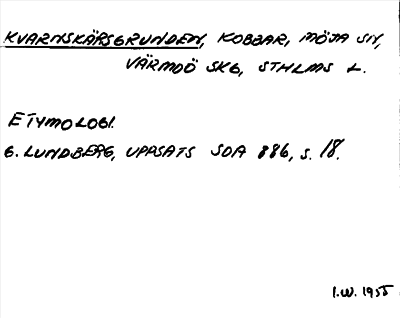 KVARNSKÄRSGRUNDEN, KOBBAR, MÖJA SN,
VÄRMDÖ SKG, STHLMS L.
ETYMOLOGI.
G. LUNDBERG, UPPSATS SOA 886, S. 18.
I.W. 1955